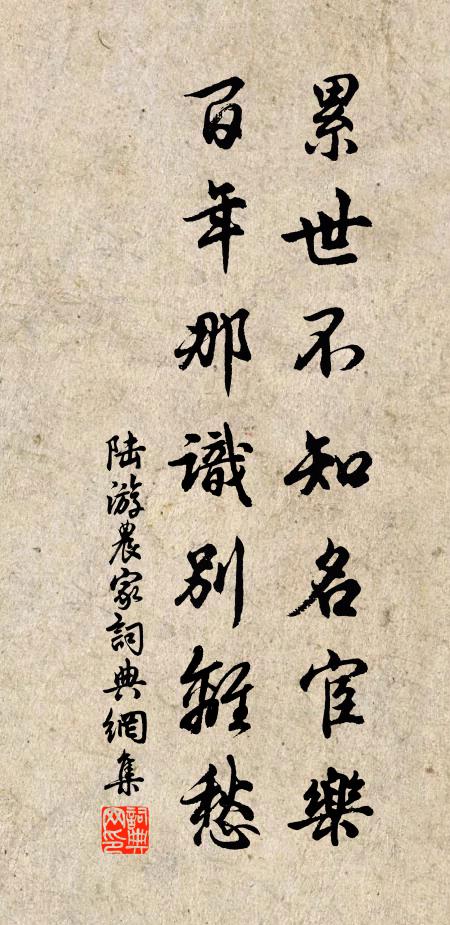 累世不知名宦樂
百年那識別離愁
陆游農家詞典網集
詞典网印